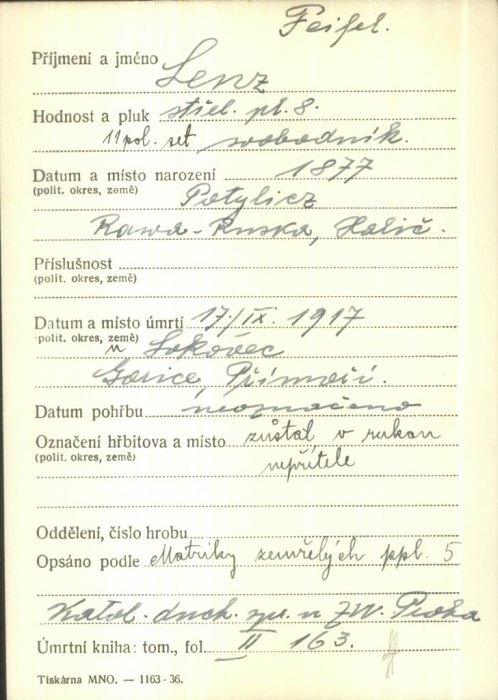 Feifel.
Příjmení a jméno Lenz
Hodnost a pluk střel. pl. 8.
11 pol. set. svobodník.
Datum a místo narození 1877
(polit. okres, země) Potylicz
Rawa-Ruska, Halič.
Příslušnost
(polit. okres, země)
Datum a místo úmrtí 17./IX. 1917
(polit. okres, země) u Lokovec
Gorice, Přímoří.
Datum pohřbu neoznačeno
Označení hřbitova a místo zůstal v rukou
(polit. okres, země) nepřítele
Oddělení, číslo hrobu
Opsáno podle Matriky zemřelých ppl. 5
Katol. duch. spr. u ZVV. Praha
Úmrtní kniha: tom., fol. II 163.
Tiskárna MNO. — 1163-36.